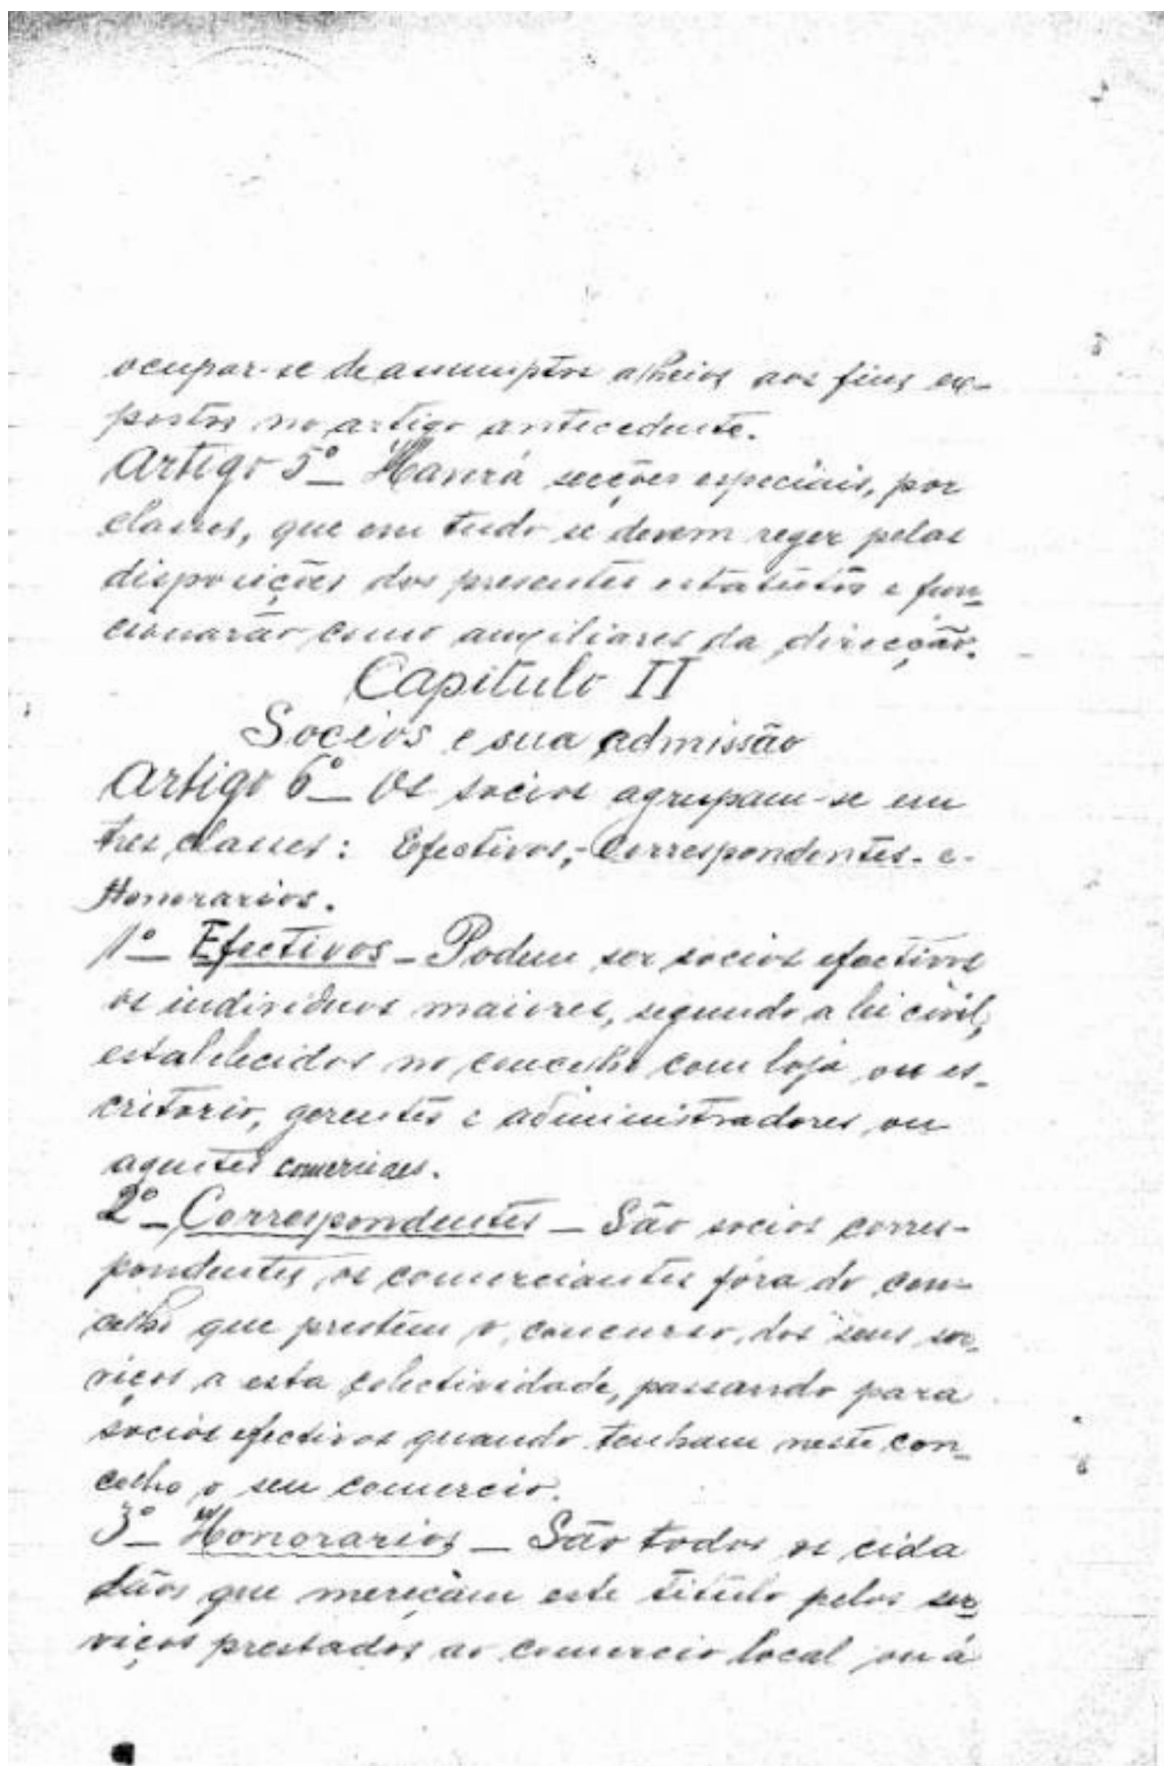 ocupar-se de assumptos alheios aos fins ex-
postos no artigo antecedente.
Artigo 5º _ Haverá secções especiais, por
classes, que em tudo se devem reger pelas
disposições dos presentes estatutos e fun-
cionarão como auxiliares da direcção.
Capitulo II
Socios e sua admissão
Artigo 6º _ Os socios agrupam-se em
tres classes: Efectivos,-Correspondentes-e-
Honorarios.
1º _ Efectivos _ Podem ser socios efectivos
os individuos maiores, segundo a lei civil,
estabelecidos no concelho com loja ou es-
critorio, gerentes e administradores ou
agentes comerciaes.
2º _ Correspondentes _ São socios corres-
pondentes os comerciantes fóra do con-
celho que prestem o concurso dos seus ser-
viços a esta colectividade, passando para
socios efectivos quando tenham neste con-
celho o seu comercio.
3º _ Honorarios _ São todos os cida
dãos que mereçam este titulo pelos ser-
viços prestados ao comercio local ou á